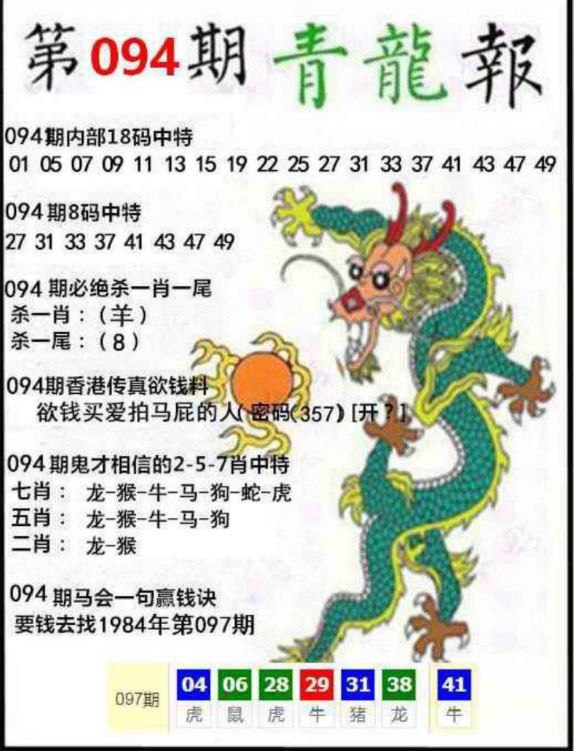 第094期青龍報
094期内部18码中特
01 05 07 09 11 13 15 19 22 25 27 31 33 37 41 43 47 49
094期8码中特
27 31 33 37 41 43 47 49
094期必绝杀一肖一尾
杀一肖：(羊)
杀一尾：(8)
094期香港传真欲钱料
欲钱买爱拍马屁的人(密码(357)[开?]
094期鬼才相信的2-5-7肖中特
七肖： 龙-猴-牛-马-狗-蛇-虎
五肖： 龙-猴-牛-马-狗
二肖： 龙-猴
094期马会一句赢钱诀
要钱去找1984年第097期
097期 04 06 28 29 31 38 41
虎 鼠 虎 牛 猪 龙 牛